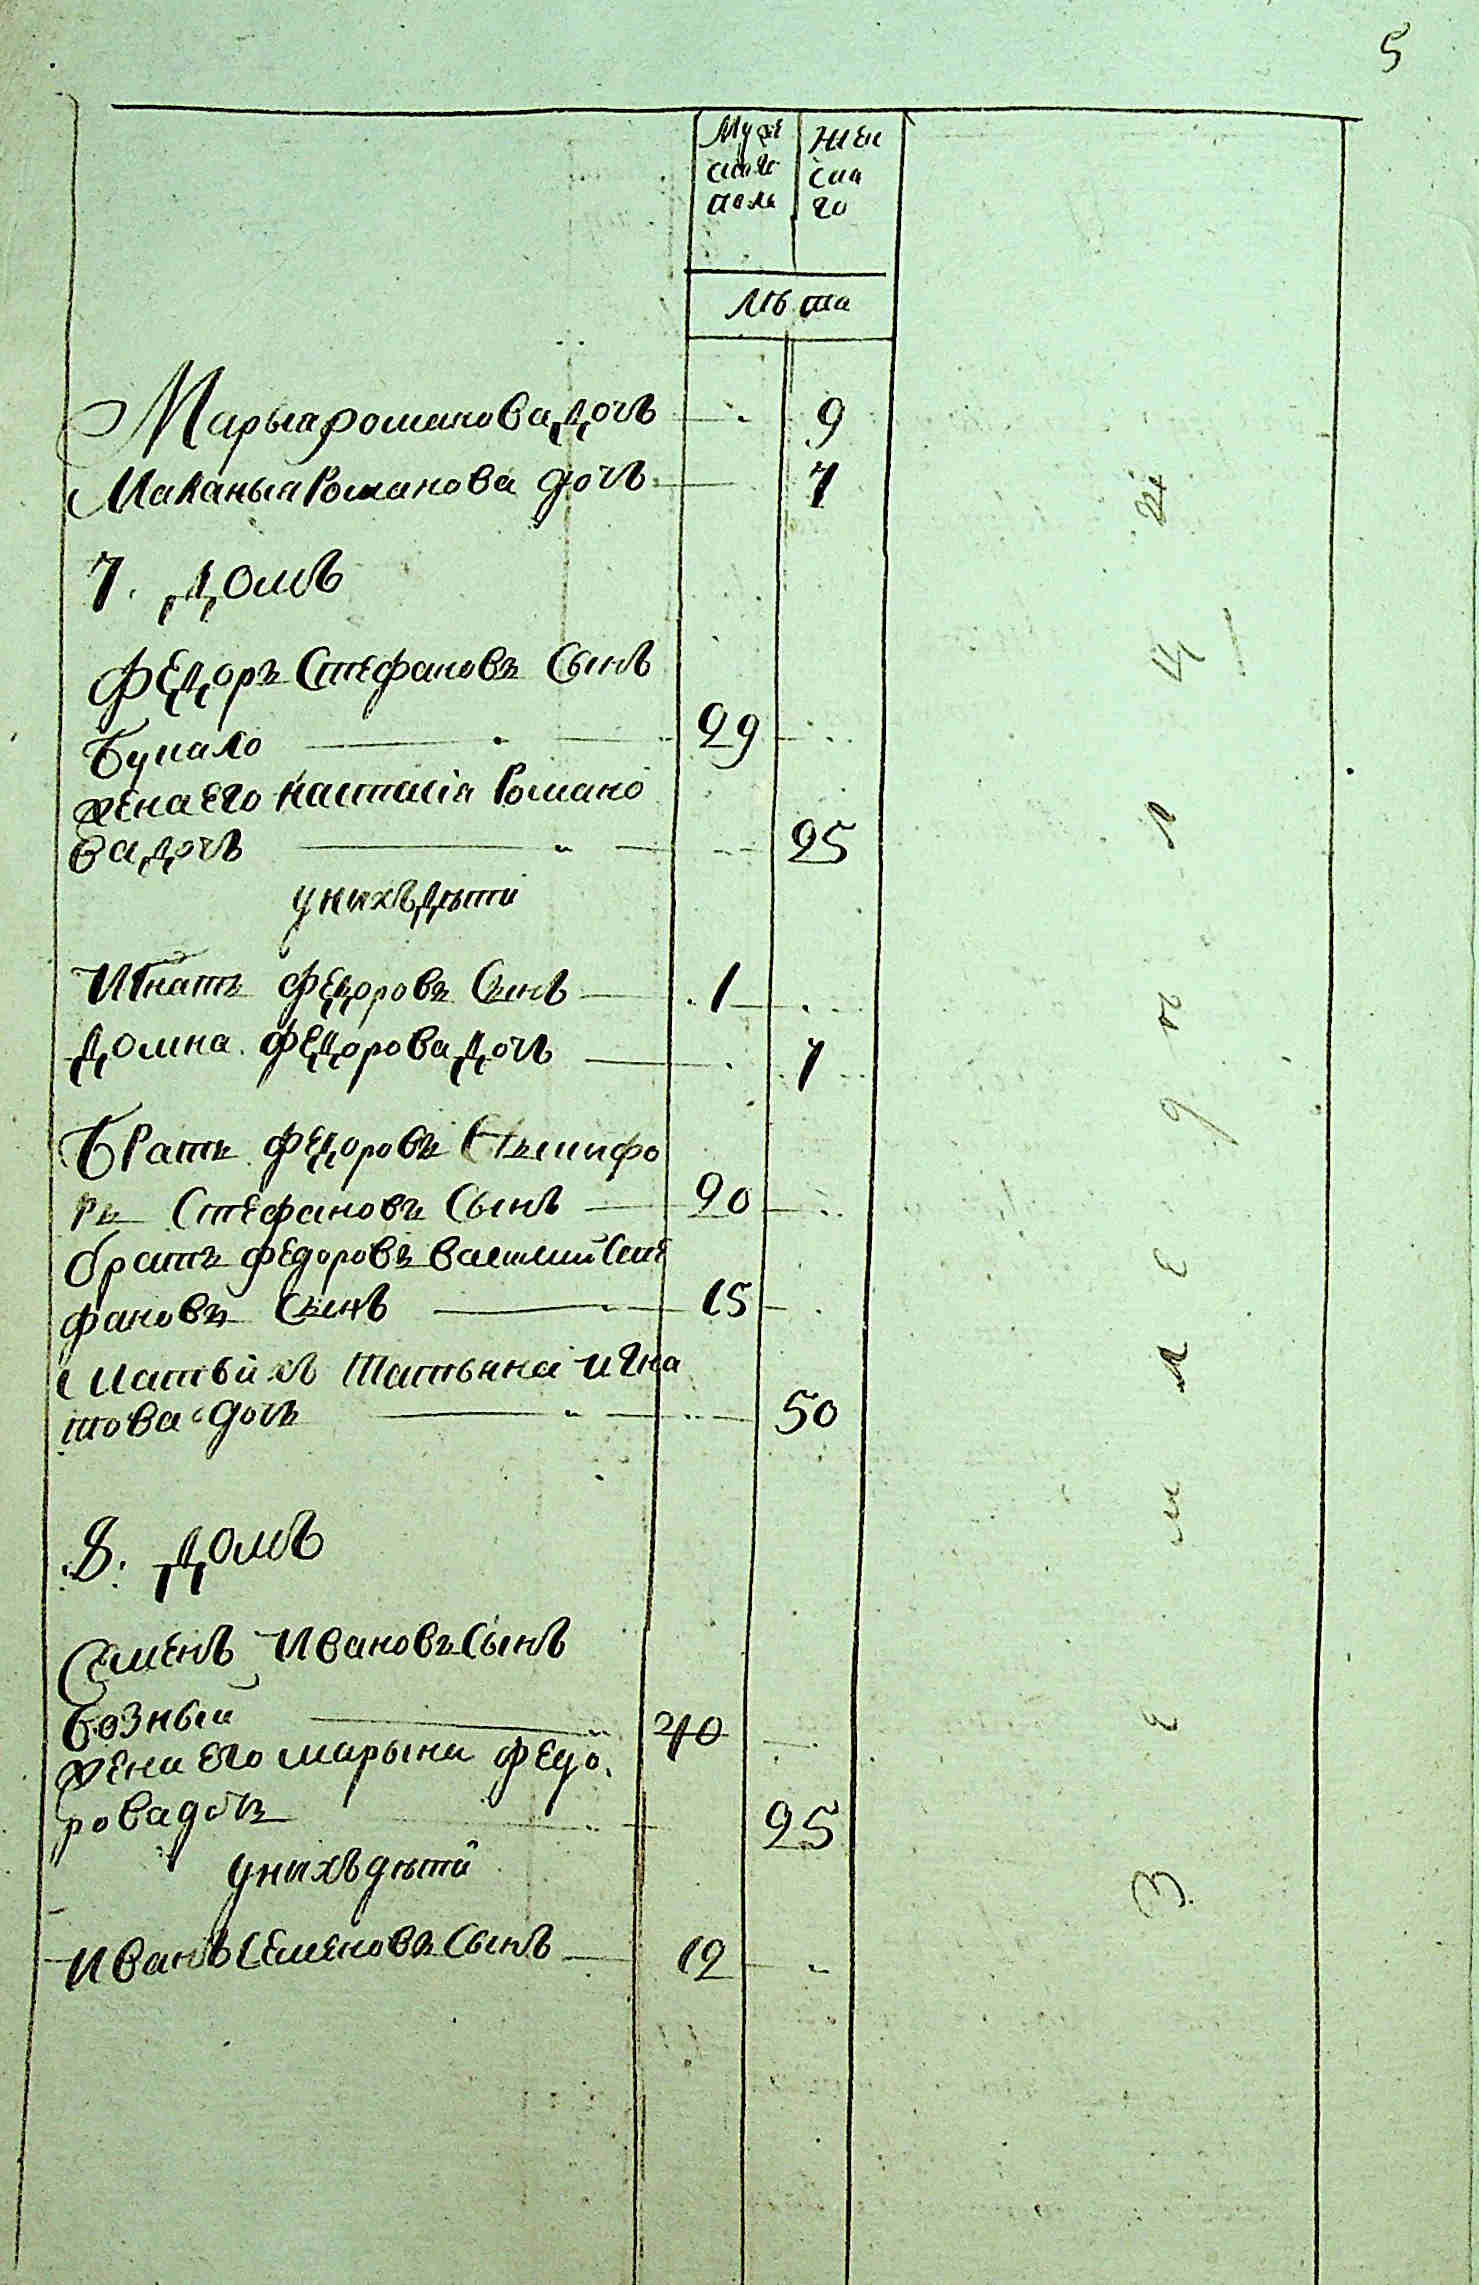 5
Мужескаго полу
Женскаго
Лѣта
Марыа романова дочь 9
Маланыа Романова дочь 7
7. Домъ
Федоръ Стефановъ Сынъ
Бунало 29
жена его настасіа Романо
ва дочь 25
у ныхъ дѣти
Игнатъ федоровъ Сынъ 1
Домна федорова дочь 7
Братъ федоровъ
ръ Стефановъ Сынъ 20
братъ федоровъ василий Сте
фановъ Сынъ 15
Мать ихъ Татьяна игна
това дочь 50
8. Домъ
Семенъ Ивановъ Сынъ
Бозный 40
жена его марына федо
рова дочь 25
у ныхъ дѣти
Иванъ Семеновъ Сынъ 12